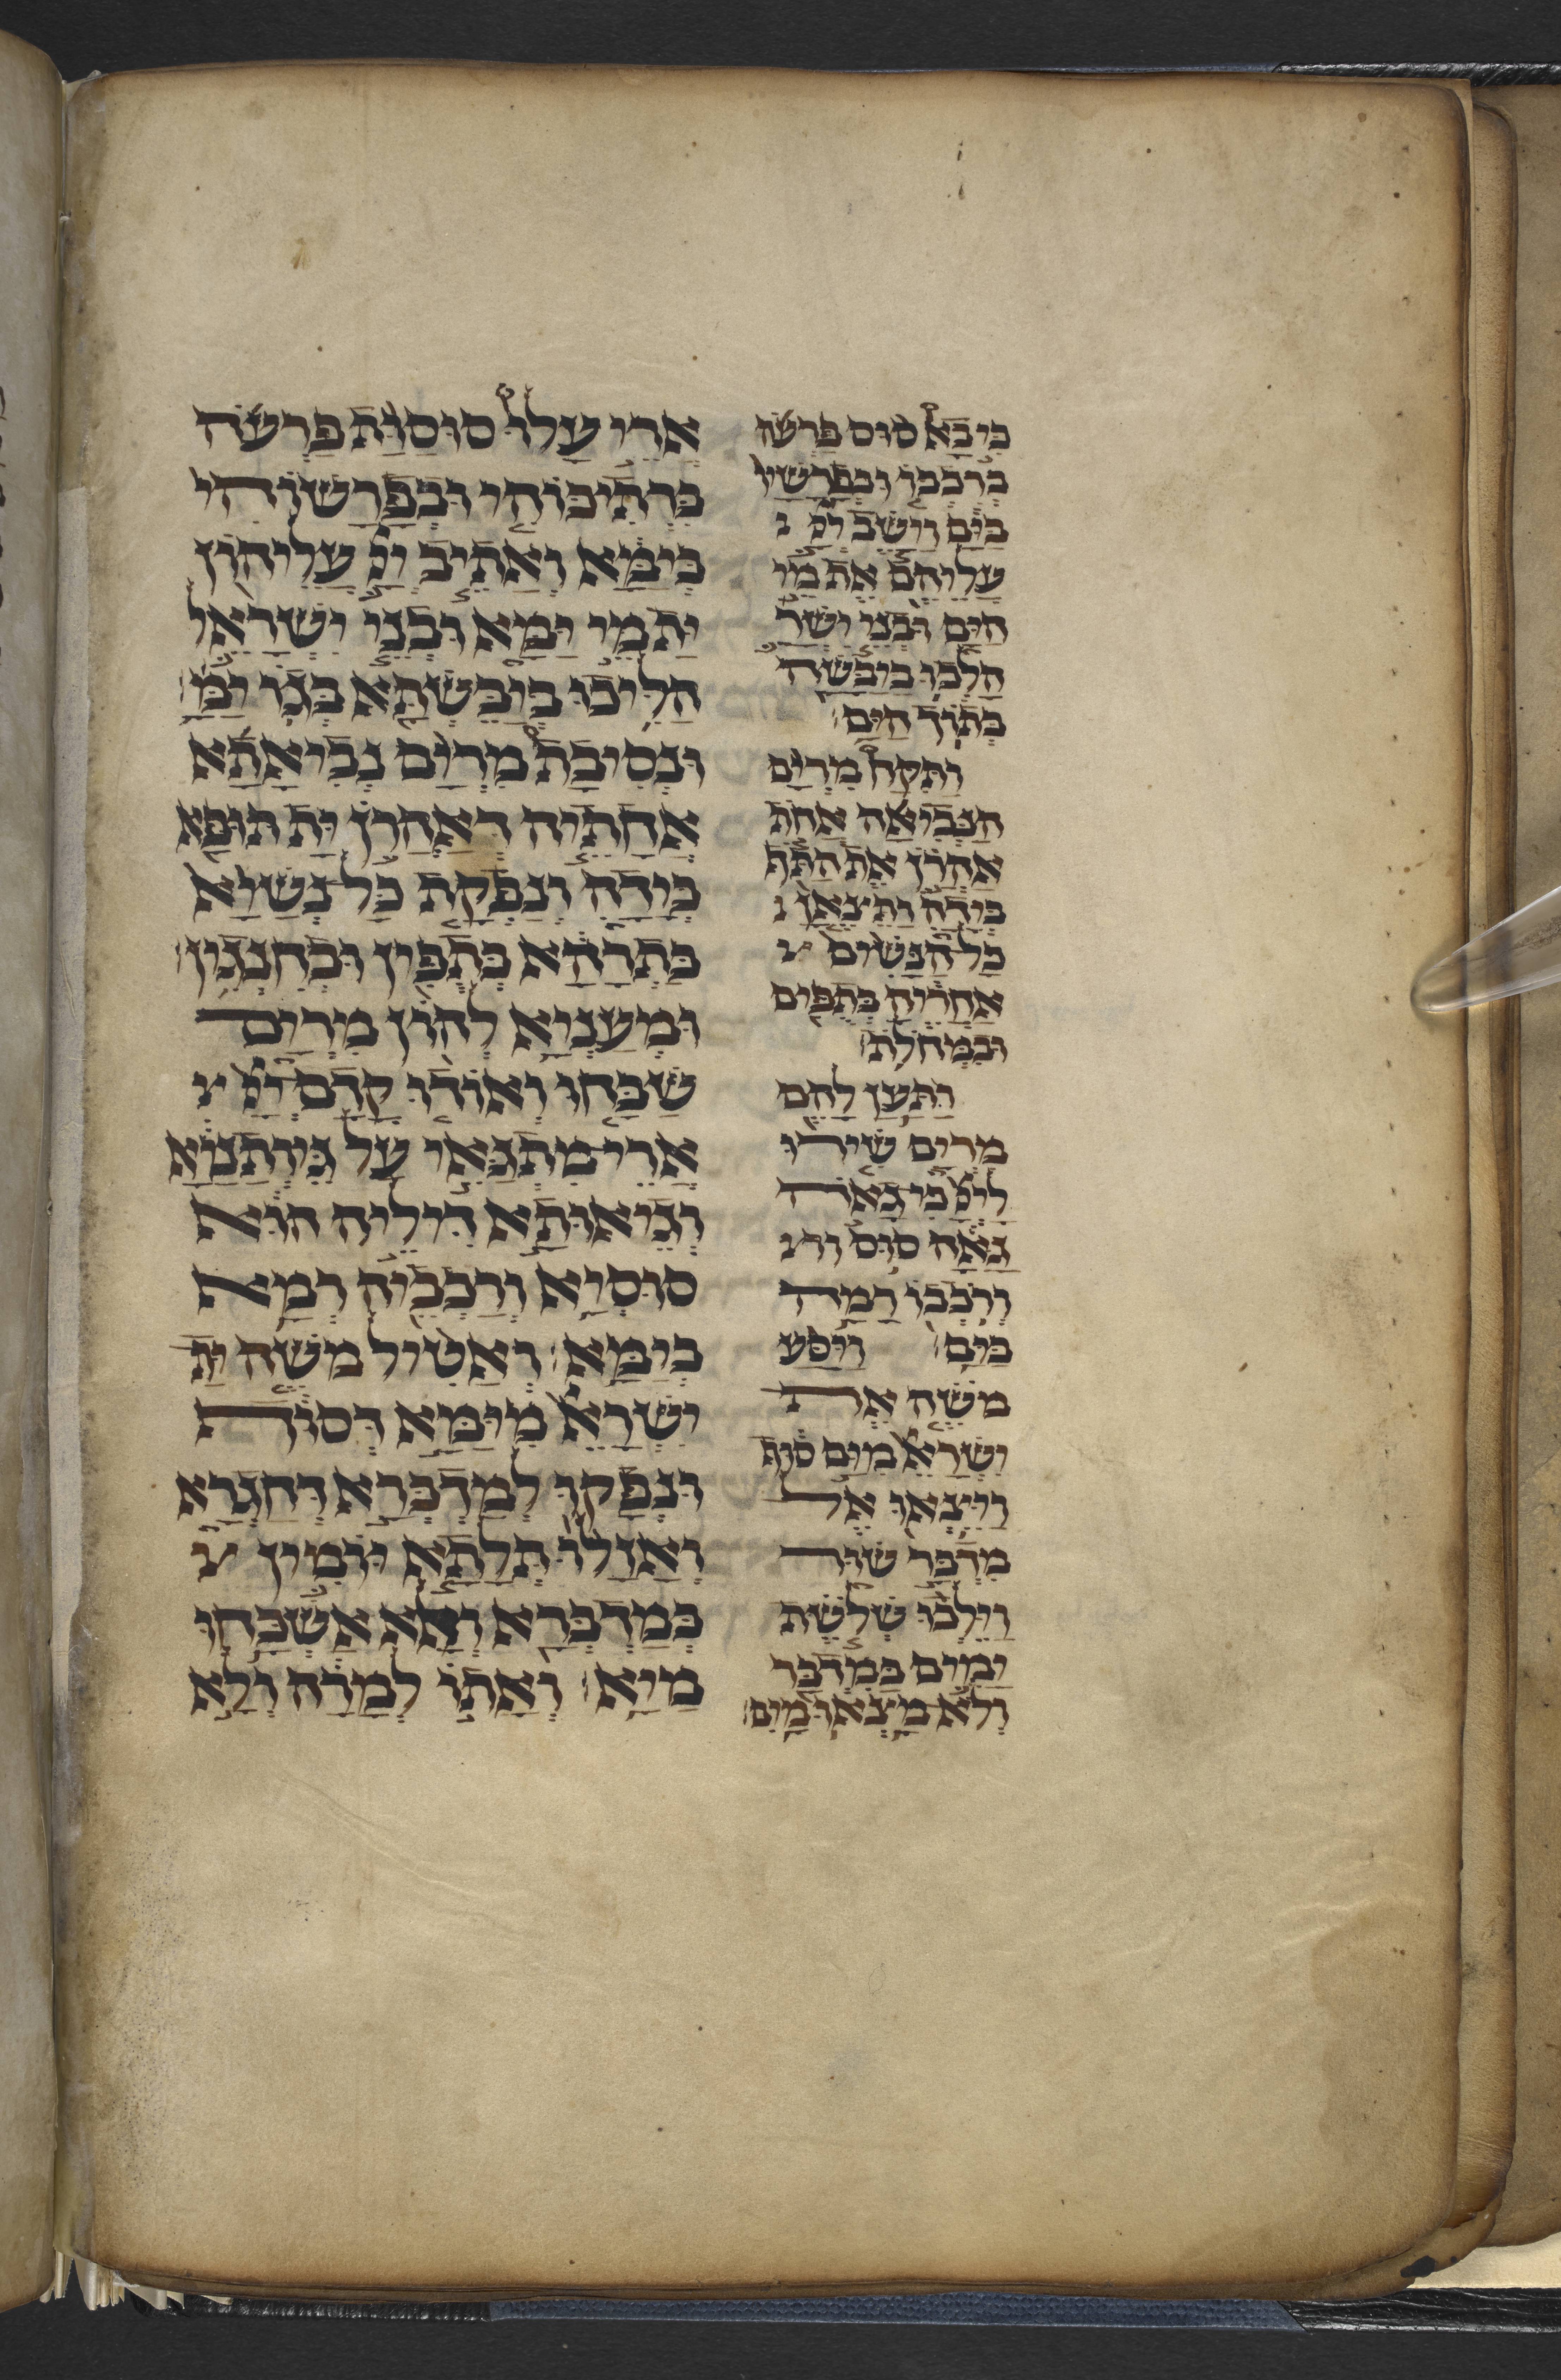 כי בא סוס פרעה
ברכבו ובפרשיו
בים וישב יי
עליהם את מי
הים ובני ישר
הלכו ביבשה
בתוך הים
ותקח מרים
הנביאה אחת
אהרן את התף
בידה ותצאן
כל הנשים
אחריה בתפים
ובמחלת
ותען להם
מרים שירו
ליי כי גאה
גאה סוס
ורכבו רמה
בים ויסע
משה את
ישרא מים סוף
ויצאו אל
מדבר שור
וילכו שלשת
ימים במדבר
ולא מצאו מים
ארי עלו סוסות פרעה
ברתיכוהי ובפרשוהי
בימא ואתיב יי עליהון
ית מי ימא ובני ישראל
הליכו ביבשתא בגו ימ
ונסיבת מרים נביאתא
אחתיה דאהרן ית תופא
בידה ונפקת כל נשיא
בתרהא בתפין ובחנגין
ומעניא להון מרים
שבחו ואודו קדם יי
ארי מתגאי על גיותניא
וגיאותא דיליה הוא
סוסיא ורכביה רמא
בימא ואטיל משה ית
ישרא מימא דסוף
ונפקו למדברא דחגרא
ואזלו תלתא יומין
במדברא ולא אשכחו
מיא ואתו למרה ולא